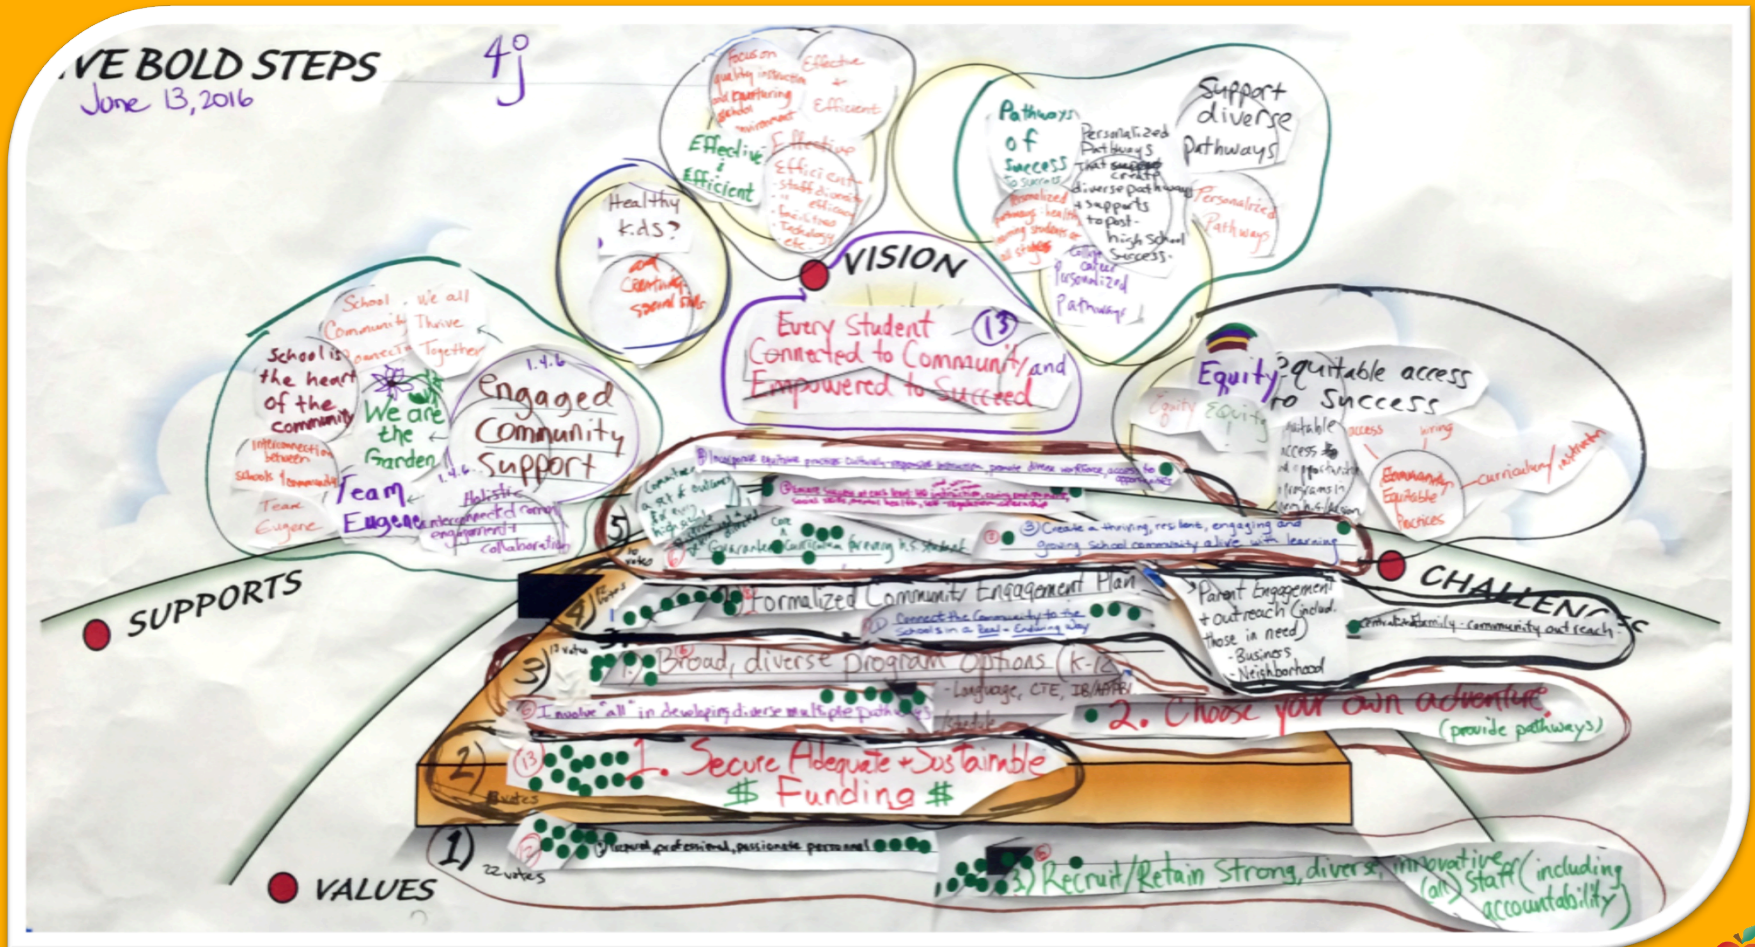 VE BOLD STEPS
June 13, 2016
4j
Focus on
quality instruction
and nurturing
school
environment
Effective
+
Efficient
Effective
&
Efficient
Effective
Efficient
- staff diversity
efficacy
- facilities
- Technology
etc.
Healthy
kids?
and
Creating
social skills
Pathways
of
Success
to success
Personalized
Pathways
that
create
diverse pathways
+ supports
to post-
high school
Success.
Support
diverse
pathways
Personalized
Pathways
Personalized
all students
College
career
Personalized
Pathways
VISION
Every Student
Connected to Community and
Empowered to Succeed
13
School
Community
Connects
We all
Thrive
Together
School is
the heart
of the
community
We are
the
Garden
1.4.6
engaged
Community
Support
Interconnection
between
schools & community
Team
Eugene
Team
Eugene
1.4.6.
Holistic
interconnected comm.
engagement +
collaboration
Equity
Equity
Equity
!
Equitable access
to Success
access
hiring
Equitable
Practices
curriculum/instruction
SUPPORTS
CHALLENGES
VALUES
5)
10 votes
Incorporate equitable practices culturally-responsive instruction, promote diverse workforce, access to
opportunities
Core
Guarantee curriculum for every h.s. student
3) Create a thriving, resilient, engaging and
growing school community alive with learning
4)
12 votes
Formalized Community Engagement Plan
Connect the Community to the
Schools in a Real + Enduring Way
Parent Engagement
+ outreach (includ.
those in need)
- Business
- Neighborhood
family-community outreach
3)
17 votes
1.) Broad, diverse program Options (K-12
- Language, CTE, IB/AP/
6 Involve "all" in developing diverse multiple pathways
schedule
2. Choose your own adventure.
(provide pathways)
2)
13
votes
1. Secure Adequate + Sustainable
$ Funding $
1)
22 votes
professional, passionate personnel
3.) Recruit/Retain Strong, diverse, innovative
(all) Staff (including
accountability)